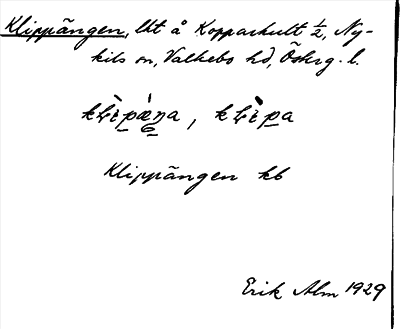 Klippängen, lht å Kopparhult ½, Ny-
kils sn, Valkebo hd, Östg. l.
Klippängen kb
Erik Alm 1929